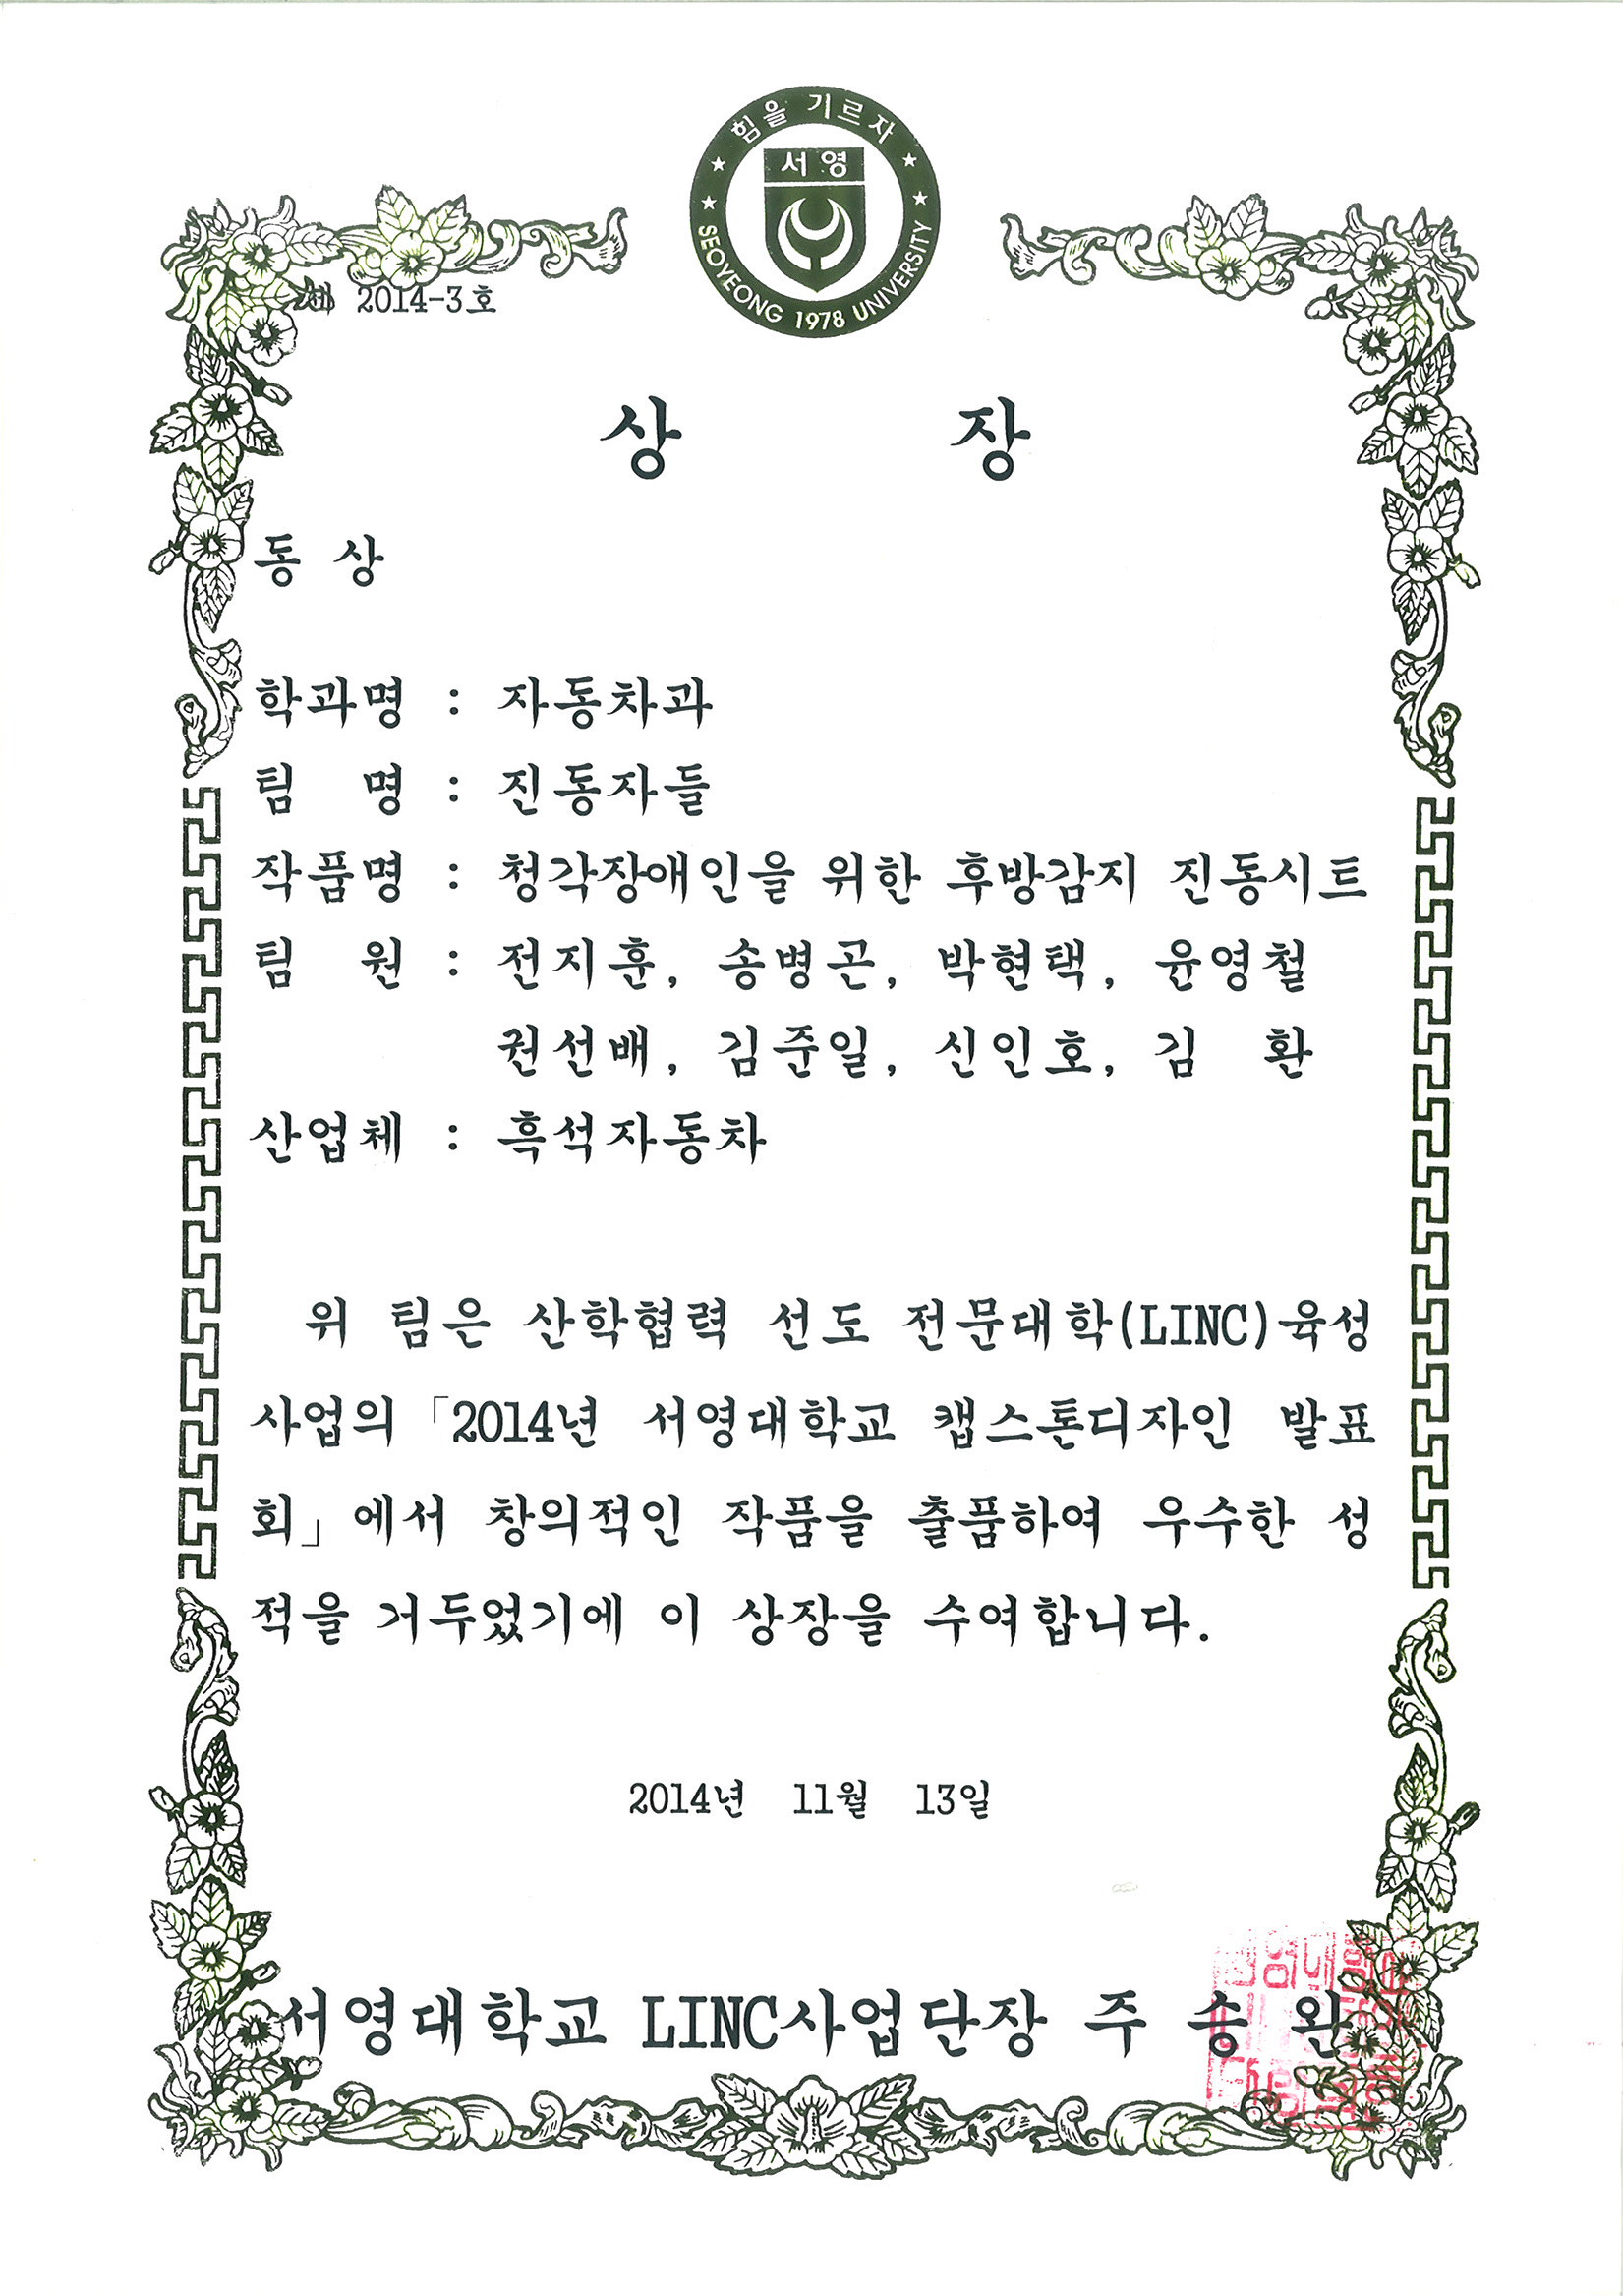 힘을 기르자
서영
SEOYEONG 1978 UNIVERSITY
제 2014-3호
상 장
동 상
학과명 : 자동차과
팀 명 : 진동자들
작품명 : 청각장애인을 위한 후방감지 진동시트
팀 원 : 전지훈, 송병곤, 박현택, 윤영철
권선배, 김준일, 신인호, 김 환
산업체 : 흑석자동차
위 팀은 산학협력 선도 전문대학(LINC)육성
사업의「2014년 서영대학교 캡스톤디자인 발표
회」에서 창의적인 작품을 출품하여 우수한 성
적을 거두었기에 이 상장을 수여합니다.
2014년 11월 13일
서영대학교 LINC사업단장 주 송 완